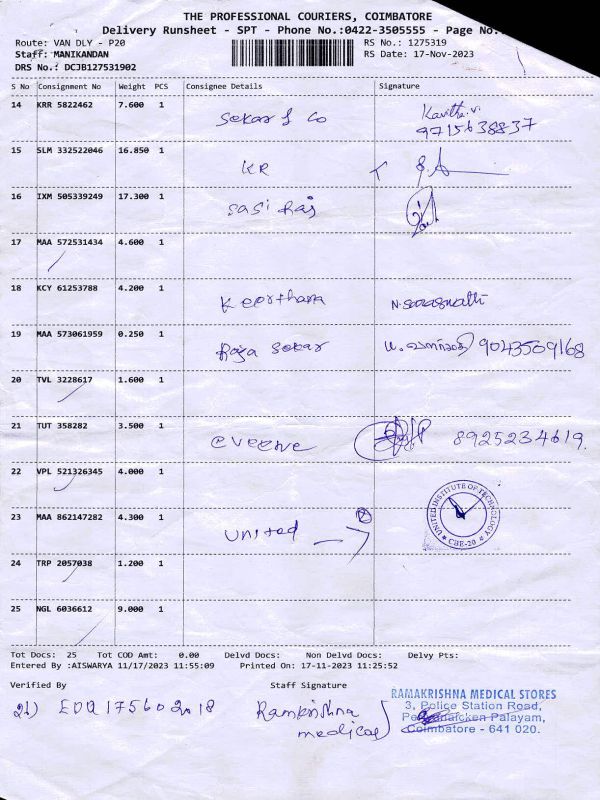 THE PROFESSIONAL COURIERS, COIMBATORE
Delivery Runsheet - SPT - Phone No.:0422-3505555 - Page No.:
Route: VAN DLY - P20 RS No.: 1275319
Staff: MANIKANDAN RS Date: 17-Nov-2023
DRS No.: DCJB127531902
S No Consignment No Weight PCS Consignee Details Signature
14 KRR 5822462 7.600 1 Sekar & Co Kavitha.v.
9715638837
15 SLM 332522046 16.850 1 KR
16 IXM 505339249 17.300 1 Sasi Raj
17 MAA 572531434 4.600 1
18 KCY 61253788 4.200 1 Keerthana N.Saraswathi
19 MAA 573061959 0.250 1 Raja Sekar 9043509168
20 TVL 3228617 1.600 1
21 TUT 358282 3.500 1 8925234619.
22 VPL 521326345 4.000 1
UNITED INSTITUTE OF TECHNOLOGY
CBE-20
23 MAA 862147282 4.300 1 United
24 TRP 2057038 1.200 1
25 NGL 6036612 9.000 1
Tot Docs: 25 Tot COD Amt: 0.00 Delvd Docs: Non Delvd Docs: Delvy Pts:
Entered By :AISWARYA 11/17/2023 11:55:09 Printed On: 17-11-2023 11:25:52
Verified By Staff Signature
Ramkrishna
medical
RAMAKRISHNA MEDICAL STORES
3, Police Station Road,
Palayam,
Coimbatore - 641 020.